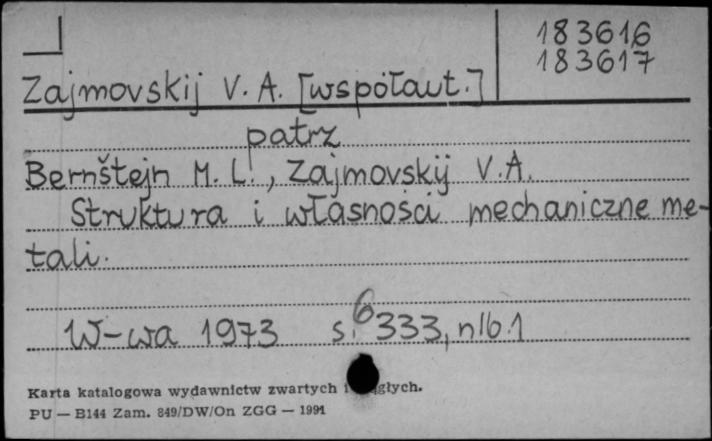 183616
183617
Zajmovskij V. A. [współaut.]
patrz
Bernštejn M. L., Zajmovskij V. A.
Struktura i własności mechaniczne me-
tali.
6
W-wa 1973 s. 333, nlb. 1
Karta katalogowa wydawnictw zwartych i
PU — B144 Zam. 849/DW/On ZGG — 1991